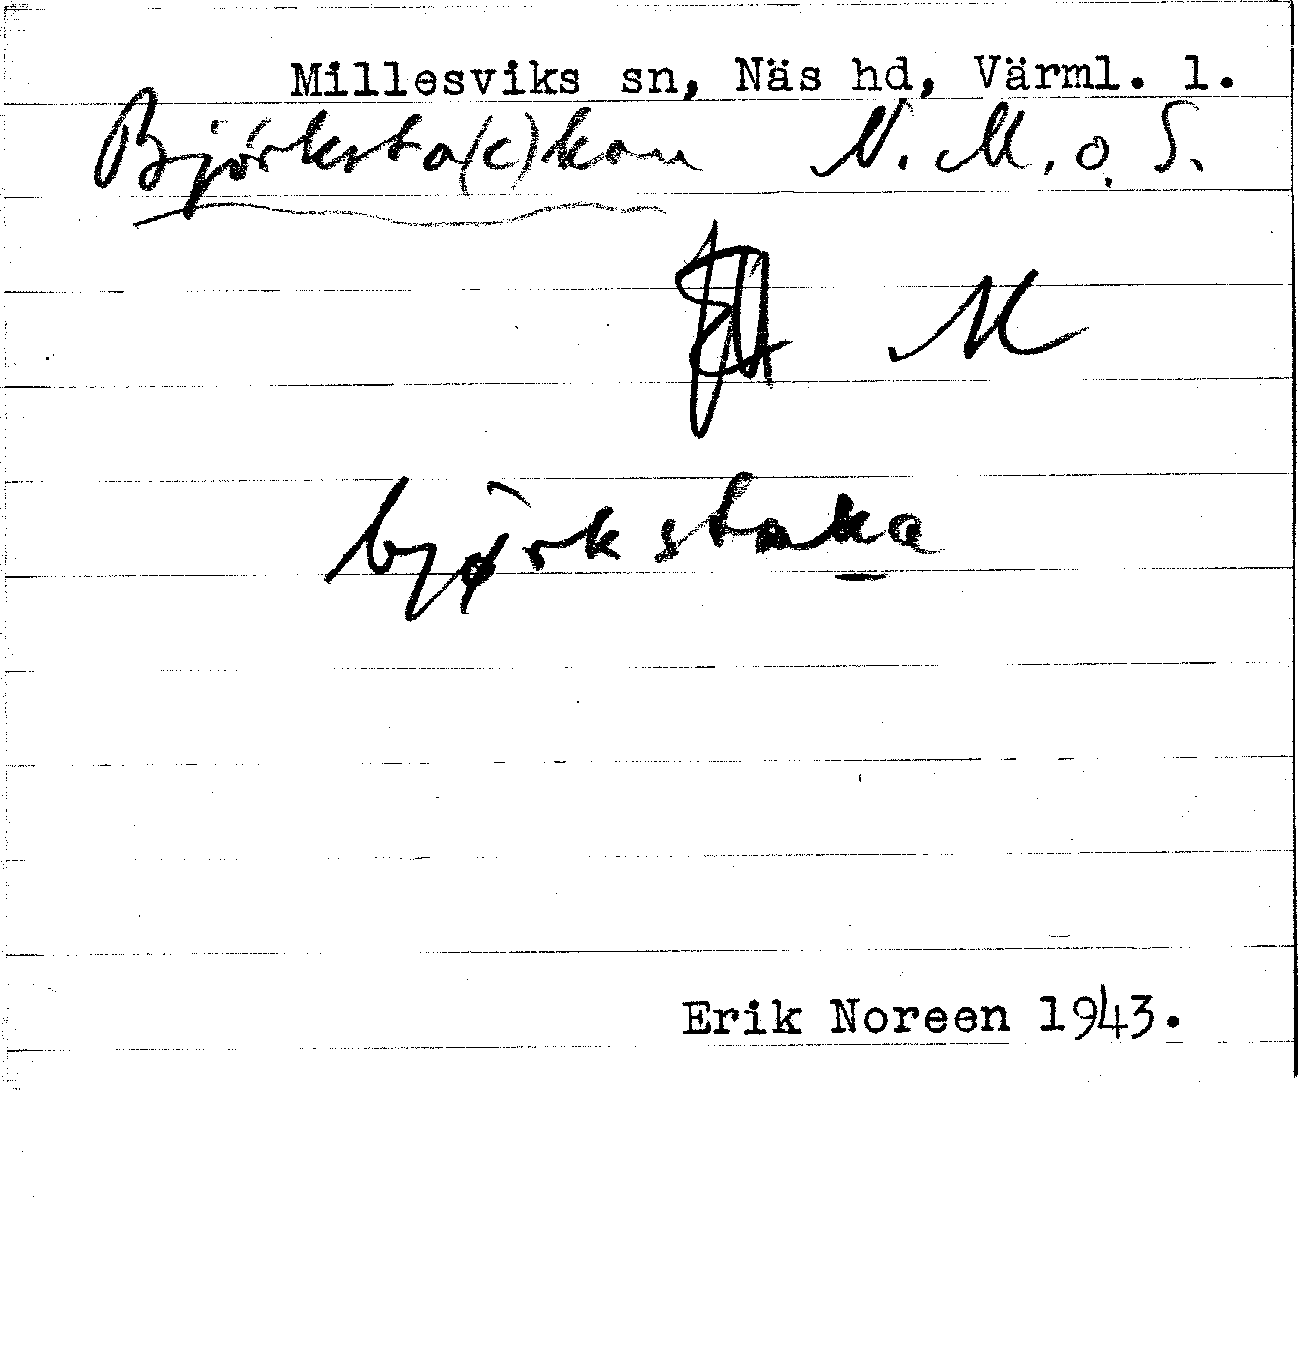 Millesviks sn, Näs hd, Värml. l.
Björksta(c)kan N. M. o. S.
M
bjørkstaka
Erik Noreen 1943.